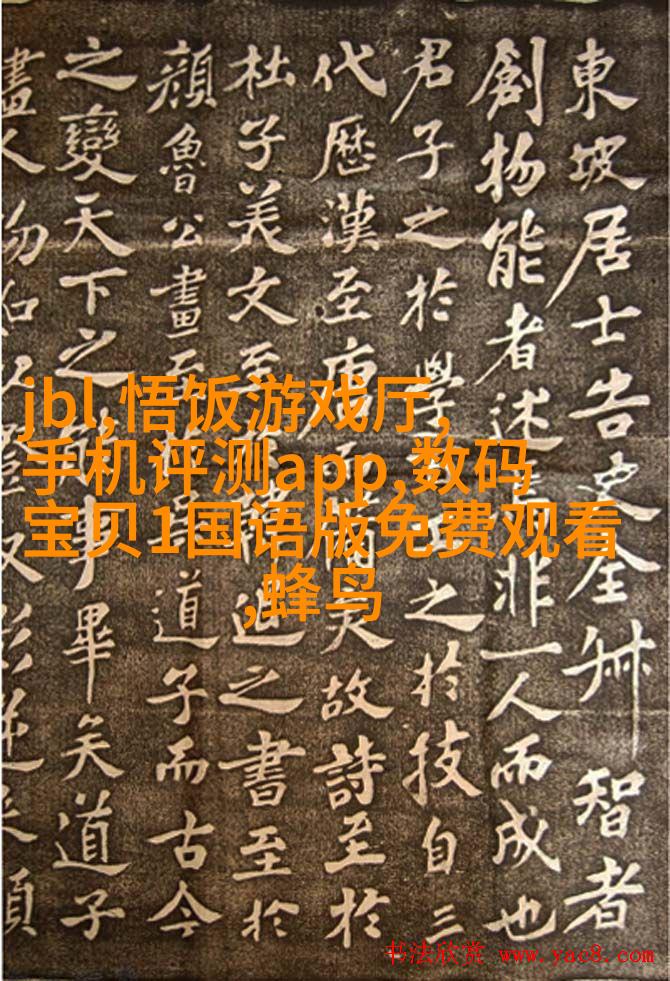 東坡居士告史全叔智者
創物能者述焉非一人而成也
君子之於學之於技自三
代歷漢至唐而矣故詩至於
杜子美文至退之書至於
顏魯公畫至道子而古今
之變天下之事畢矣道子
畫人物如以燈取影逆來順
jbl,悟饭游戏厅,
手机评测app,数码
宝贝1国语版免费观看
,蜂鸟
书法欣赏 www.yac8.com